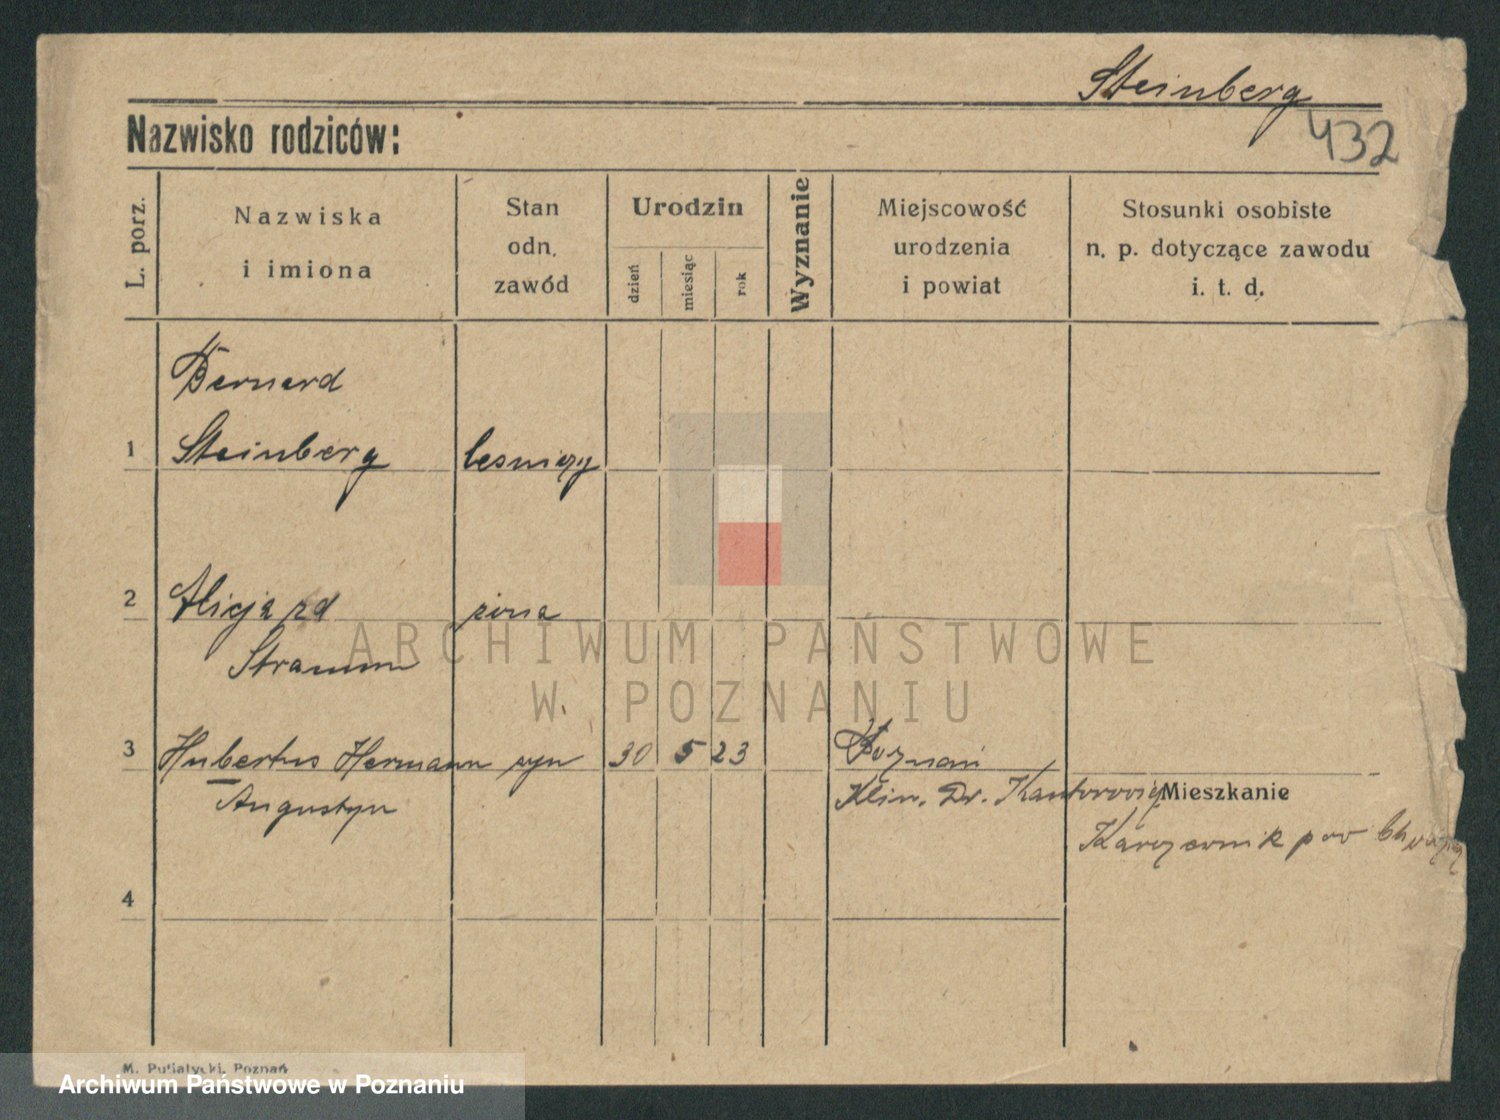 Steinberg
432
Nazwisko rodziców:
L. porz.
Nazwiska
i imiona
Stan
odn.
zawód
Urodzin
dzień
miesiąc
rok
Wyznanie
Miejscowość
urodzenia
i powiat
Stosunki osobiste
n. p. dotyczące zawodu
i. t. d.
Bernard
1 Steinberg leśniczy
2 Alicja zd żona
Stramm
ARCHIWUM PAŃSTWOWE
W POZNANIU
3 Hubertus Hermann syn 30 5 23 Poznań
Augustyn
Klin. Dr. Kantorowicz
Mieszkanie
pow
4
M. Putiatycki, Poznań
Archiwum Państwowe w Poznaniu